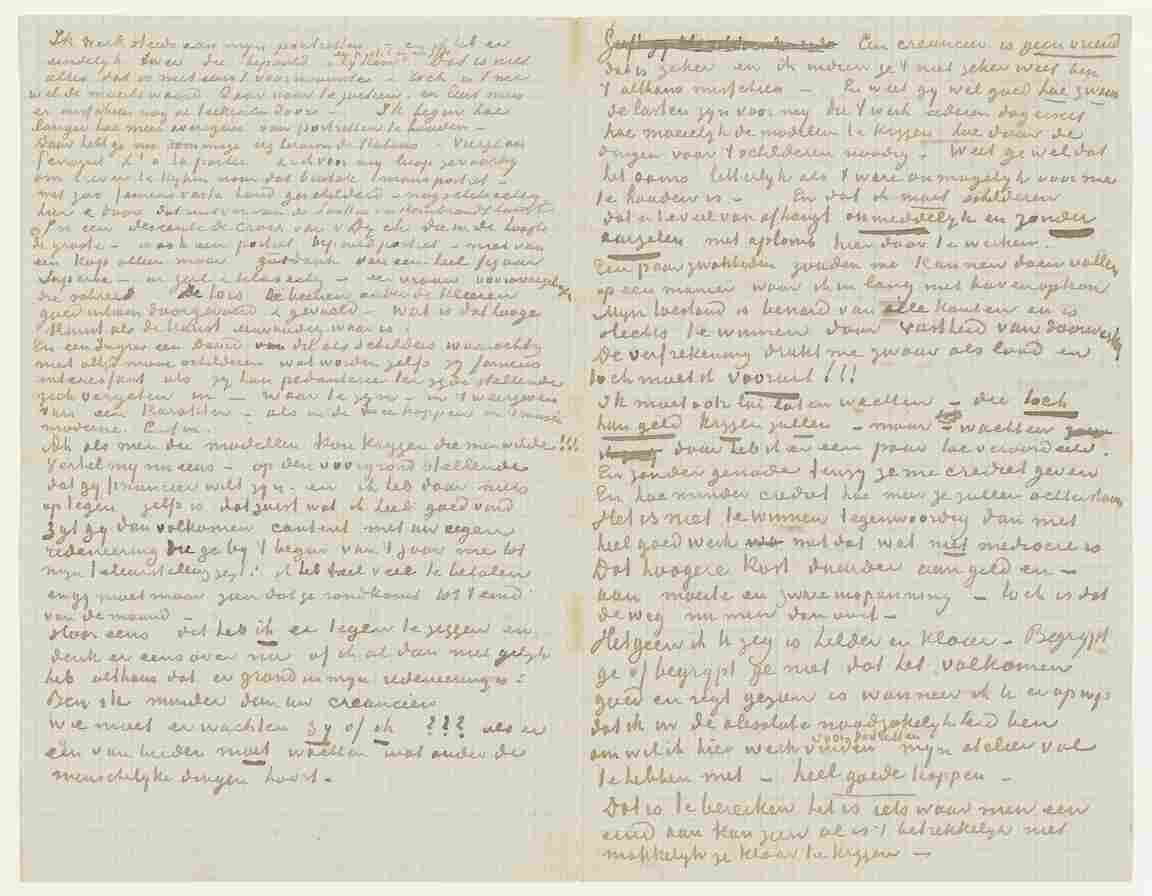 Ik werk steeds aan mijn portretten – en ik heb er
eindelijk twee die bepaald “lijkend”. Dat is niet
alles dat is niet eens t voornaamste – toch is t me
wel de moeite waard daar naar te zoeken. en leert men
er misschien nog de teekenen door – Ik begin hoe
langer hoe meer overigens van portretten te houden –
Daar hebt ge nu sommige
om liever te kijken naar dat beroemde mansportret –
met zoo fameus vaste hand geschilderd –
hier & daar dat iets er van de Rembrandt
In een descente de croix van v. Dijk die in de hoogte
de groote – is ook een portret, bepaald portret – niet van
een kop alleen maar godverdomme van een heel figuur
superbe – in geel & – een vrouw voorovergebogen
die schreit De torse & de beenen onder de kleeren
goed intiem doorgevoeld & gevoeld – wat is dat hooge
kunst als de kunst eenvoudig waar is.
En een Ingres een David van die als schilders waarachtig
niet altijd mooi schilderen wat worden zelfs zij fameus
interessant als zij hun pedanterie ter zijde stellende
zich vergeten in – waar te zijn – in t weergeven
van een karakter – als in de twee koppen in musée
moderne. Enfin.
Ah als men de modellen kon krijgen die men wilde !!!
Vertel mij nu eens – op den voorgrond stellende
dat gij financier wilt zijn – en ik heb daar niets
op tegen zelfs is dat juist wat ik heel goed vind
Zijt gij dan volkomen content met uw eigen
redeneering die ge bij t begin van t jaar me tot
mijn teleurstelling zegt: ik heb heel veel te betalen
en gij moet maar zien dat ge rondkomt tot t eind
van de maand –
Hoor eens dat heb ik er tegen te zeggen en
denk er eens over na of ik al dan niet gelijk
heb althans dat er grond in mijn redeneering is:
Ben ik minder dan uw creancier
Wie moet er wachten zij of ik ??? als er
een van beiden moet wachten wat onder de
menschelijke dingen hoort –
Een creancier is geen vriend
dat is zeker en ik indien je t niet zeker weet ben
t althans misschien – En weet gij wel goed hoe zwaar
de lasten zijn voor mij die t werk iederen dag eischt
hoe moeielijk de modellen te krijgen hoe duur de
dingen voor t schilderen noodig – Weet ge wel dat
het soms letterlijk als t ware onmogelijk voor me
te houden is – En dat ik moet schilderen
dat er te veel van afhangt onmiddelijk en zonder
aarzelen met aplomb hier door te werken.
Een paar zwakheden zouden me kunnen doen vallen
op een manier waar ik in lang niet boven op kom
Mijn toestand is benard van alle kanten en is
slechts te winnen door vastheid van doorwerken
De verfrekening drukt me zwaar als lood en
toch moet ik vooruit !!!
Ik moet ook lui laten wachten – die toch
hun geld krijgen zullen – maar wachten
daar heb ik er een paar toe veroordeeld.
En zonder genade tenzij ze me crediet geven
En hoe minder crediet hoe meer ze zullen achterstaan
Het is niet te winnen tegenwoordig dan met
heel goed werk niet dat wat niet mediocre is
Dat hoogere kost duurder aan geld en –
aan moeite en zwaar inspanning – Toch is dat
de weg nu men dan ooit –
Hetgeen ik U zeg is helder en klaar – Begrijpt
ge of begrijpt ge niet dat het volkomen
goed en regt gezien is wanneer ik U er op wijs
dat ik in de absolute noodzakelijkheid ben
om wil ik hier werk vinden voor portretten mijn atelier vol
te hebben met – heel goede koppen –
Dat is te bereiken het is iets waar men een
eind aan kan zien al is t betrekkelijk niet
makkelijk ze klaar te krijgen –